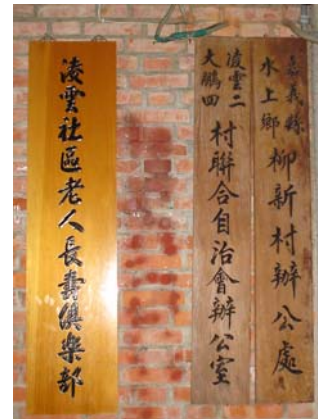 嘉義縣
水上鄉
柳新村辦公處
凌雲二
大鵬四
村聯合自治會辦公室
凌雲社區老人長壽俱樂部